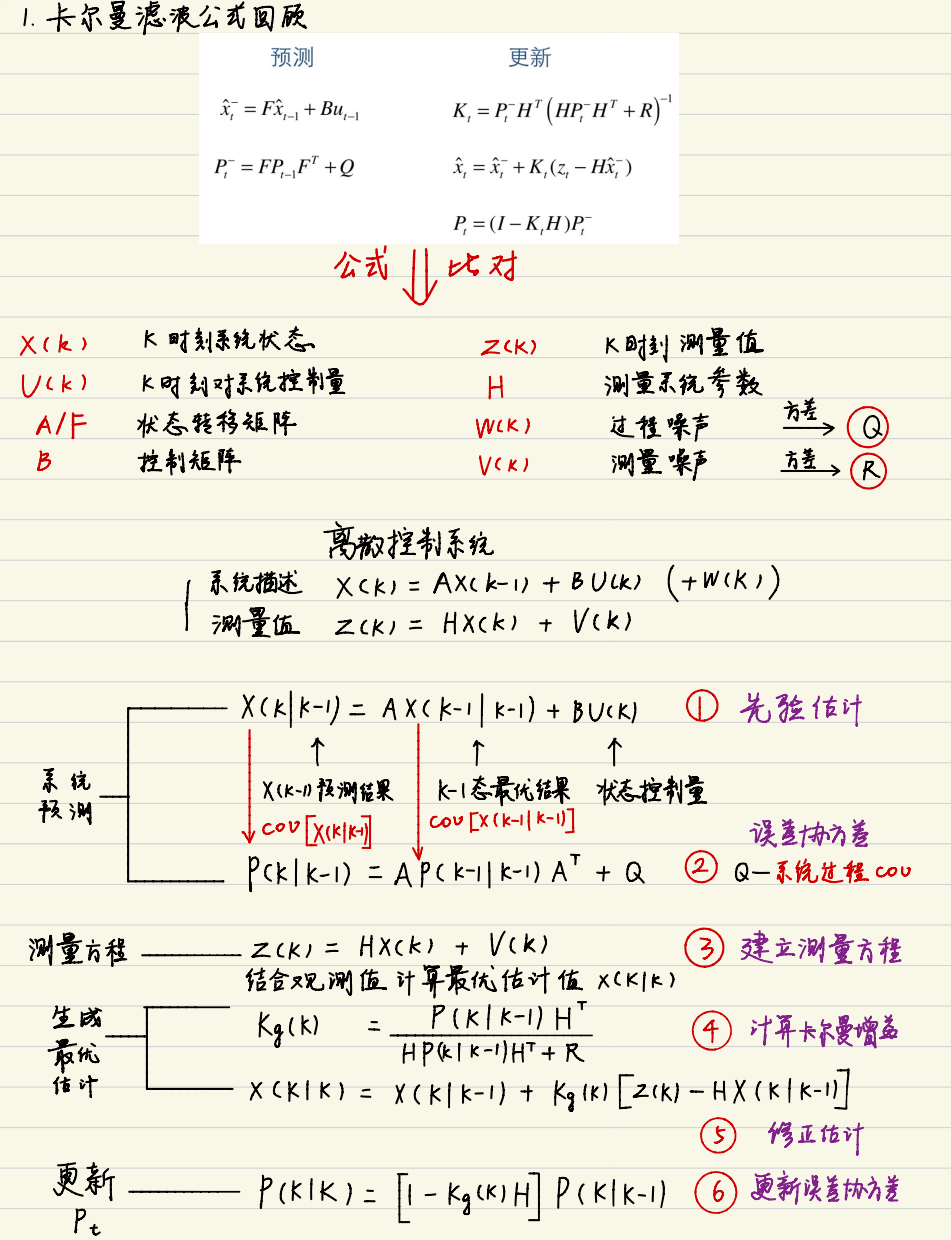 1. 卡尔曼滤波公式回顾
预测 更新
x̂ₜ⁻ = Fx̂ₜ₋₁ + Buₜ₋₁ Kₜ = Pₜ⁻Hᵀ(HPₜ⁻Hᵀ + R)⁻¹
Pₜ⁻ = FPₜ₋₁Fᵀ + Q x̂ₜ = x̂ₜ⁻ + Kₜ(zₜ − Hx̂ₜ⁻)
Pₜ = (I − KₜH)Pₜ⁻
公式 ⇓ 比对
X(k) K时刻系统状态 Z(K) K时刻测量值
U(k) K时刻对系统控制量 H 测量系统参数
A/F 状态转移矩阵 W(K) 过程噪声 方差 → Q
B 控制矩阵 V(K) 测量噪声 方差 → R
离散控制系统
系统描述 X(K) = AX(k-1) + BU(k) (+W(K))
测量值 Z(K) = HX(k) + V(k)
X(k|k-1) = AX(k-1|k-1) + BU(K) ① 先验估计
系统预测 X(k-1)预测结果 K-1态最优结果 状态控制量
cov[X(k|k-1)] cov[X(k-1|k-1)]
误差协方差
P(k|k-1) = AP(k-1|k-1)Aᵀ + Q ② Q—系统过程cov
测量方程 Z(K) = HX(K) + V(K) ③ 建立测量方程
结合观测值计算最优估计值 X(K|K)
生成最优估计 Kg(k) = P(K|K-1)Hᵀ / HP(k|k-1)Hᵀ + R ④ 计算卡尔曼增益
X(K|K) = X(K|K-1) + Kg(k)[Z(k) - HX(K|K-1)]
⑤ 修正估计
更新 Pₜ P(K|K) = [1 - Kg(k)H] P(K|K-1) ⑥ 更新误差协方差